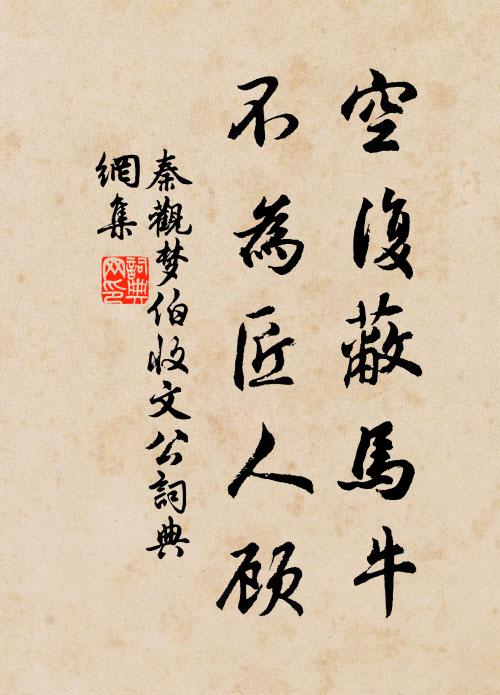 空復蔽馬牛
不為匠人顧
秦觀梦伯收文公詞典
網集
詞典網印